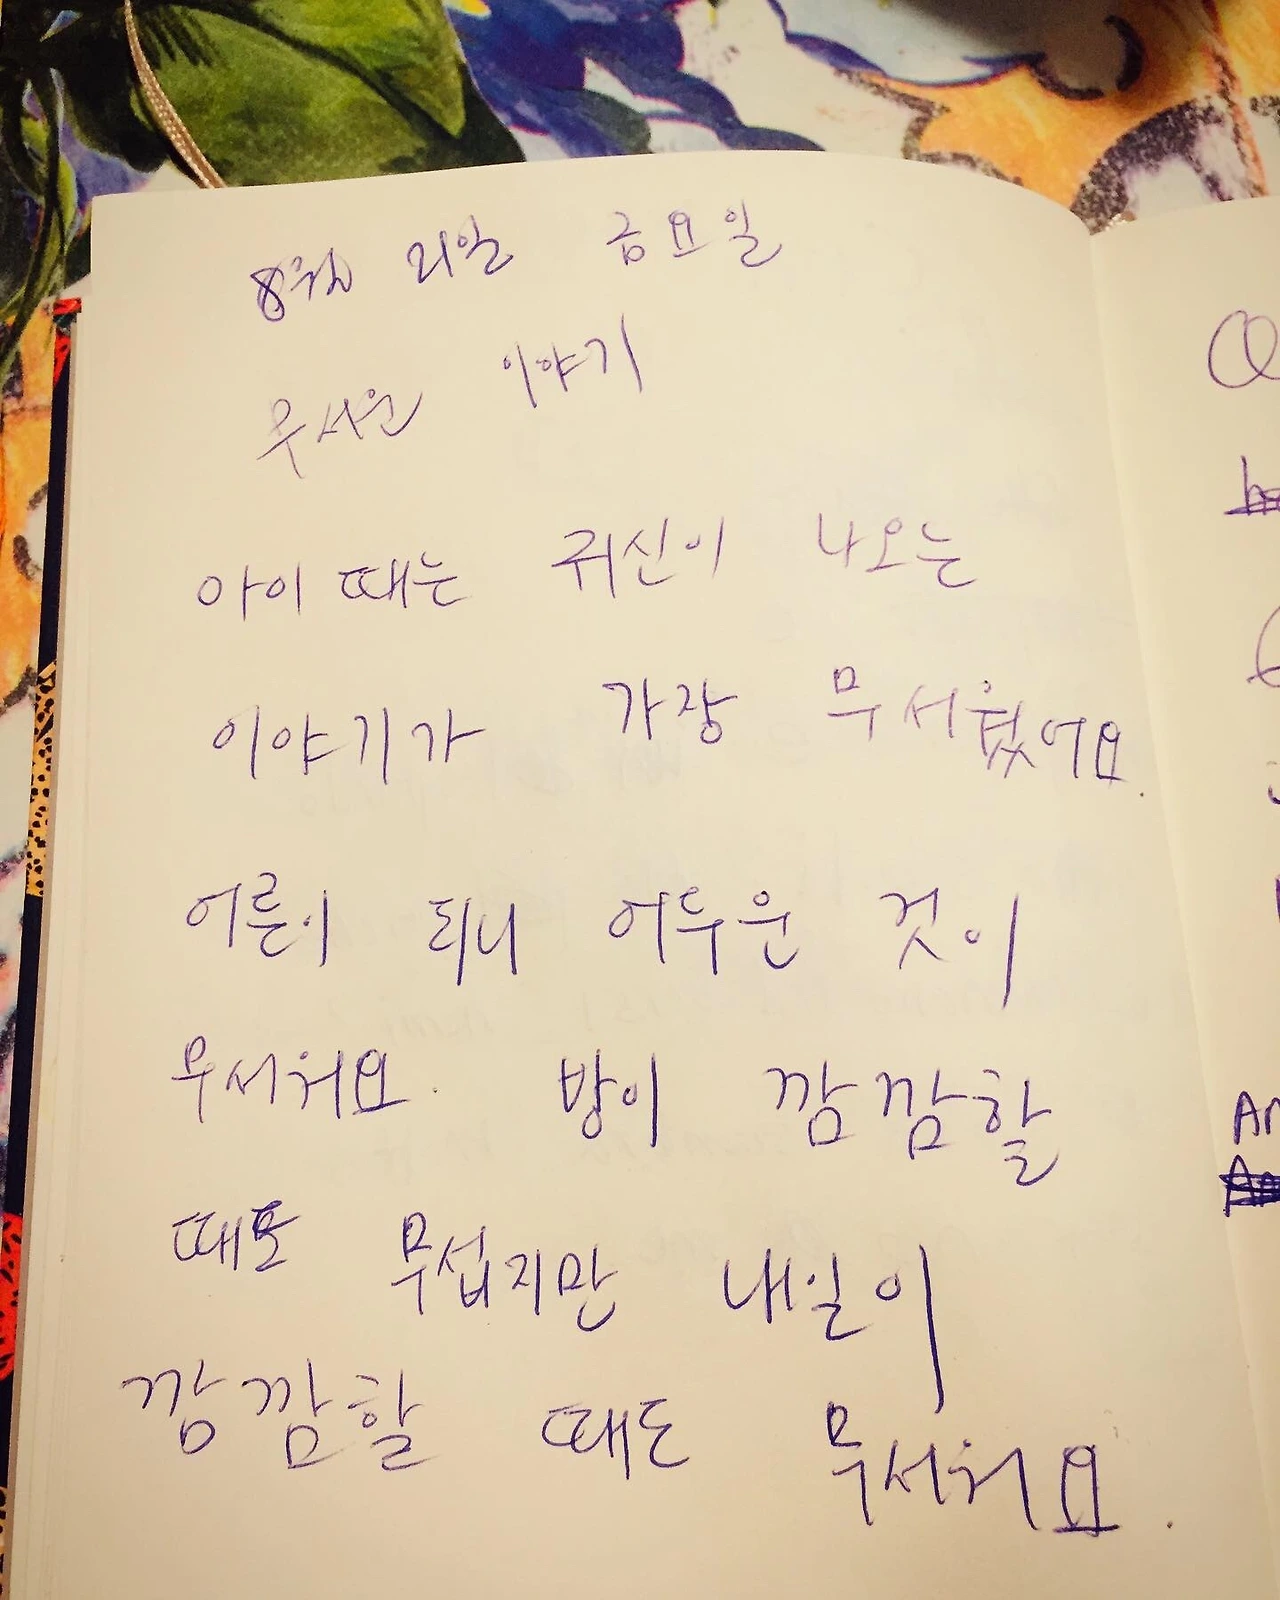 8월 21일 금요일
무서운 이야기
아이 때는 귀신이 나오는
이야기가 가장 무서웠어요.
어른이 되니 어두운 것이
무서워요. 방이 깜깜할
때도 무섭지만 내일이
깜깜할 때도 무서워요.